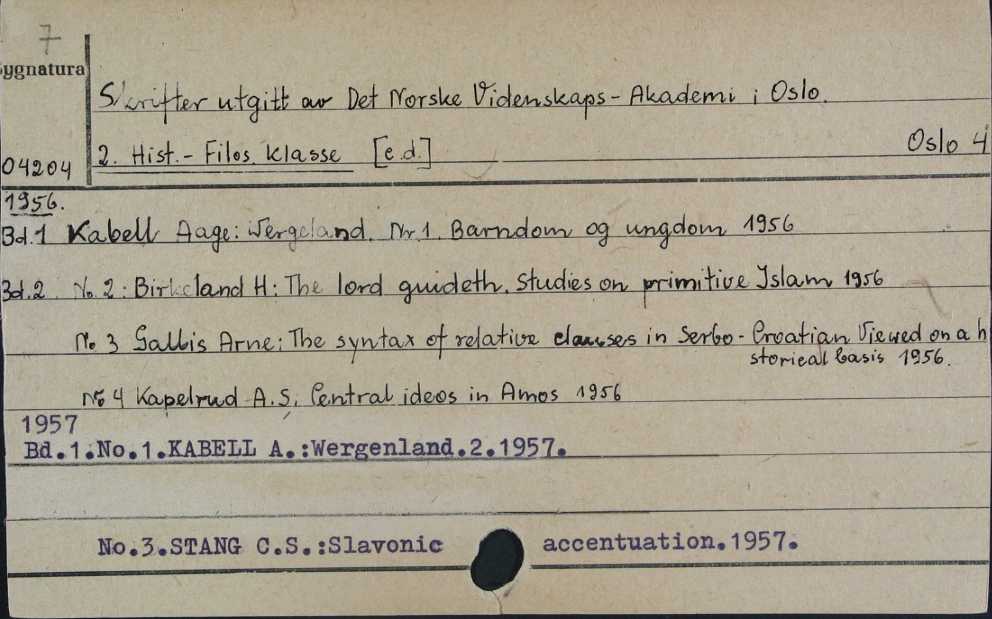 7
ygnatura
Skrifter utgitt av Det Norske Videnskaps-Akademi i Oslo.
04204 2. Hist.- Filos. Klasse [e.d.] Oslo 4
1956.
Bd.1 Kabell Aage: Wergeland. Nr.1. Barndom og ungdom 1956
Bd.2. No. 2: Birkeland H: The lord guideth. Studies on primitive Islam 1956
No 3 Gallis Arne: The syntax of relative clauses in Serbo-Croatian Viewed on a h
storical basis 1956.
No 4 Kapelrud A.S. Central ideos in Amos 1956
1957
Bd.1.No.1.KABELL A.:Wergenland.2.1957.
No.3.STANG C.S.:Slavonic accentuation.1957.